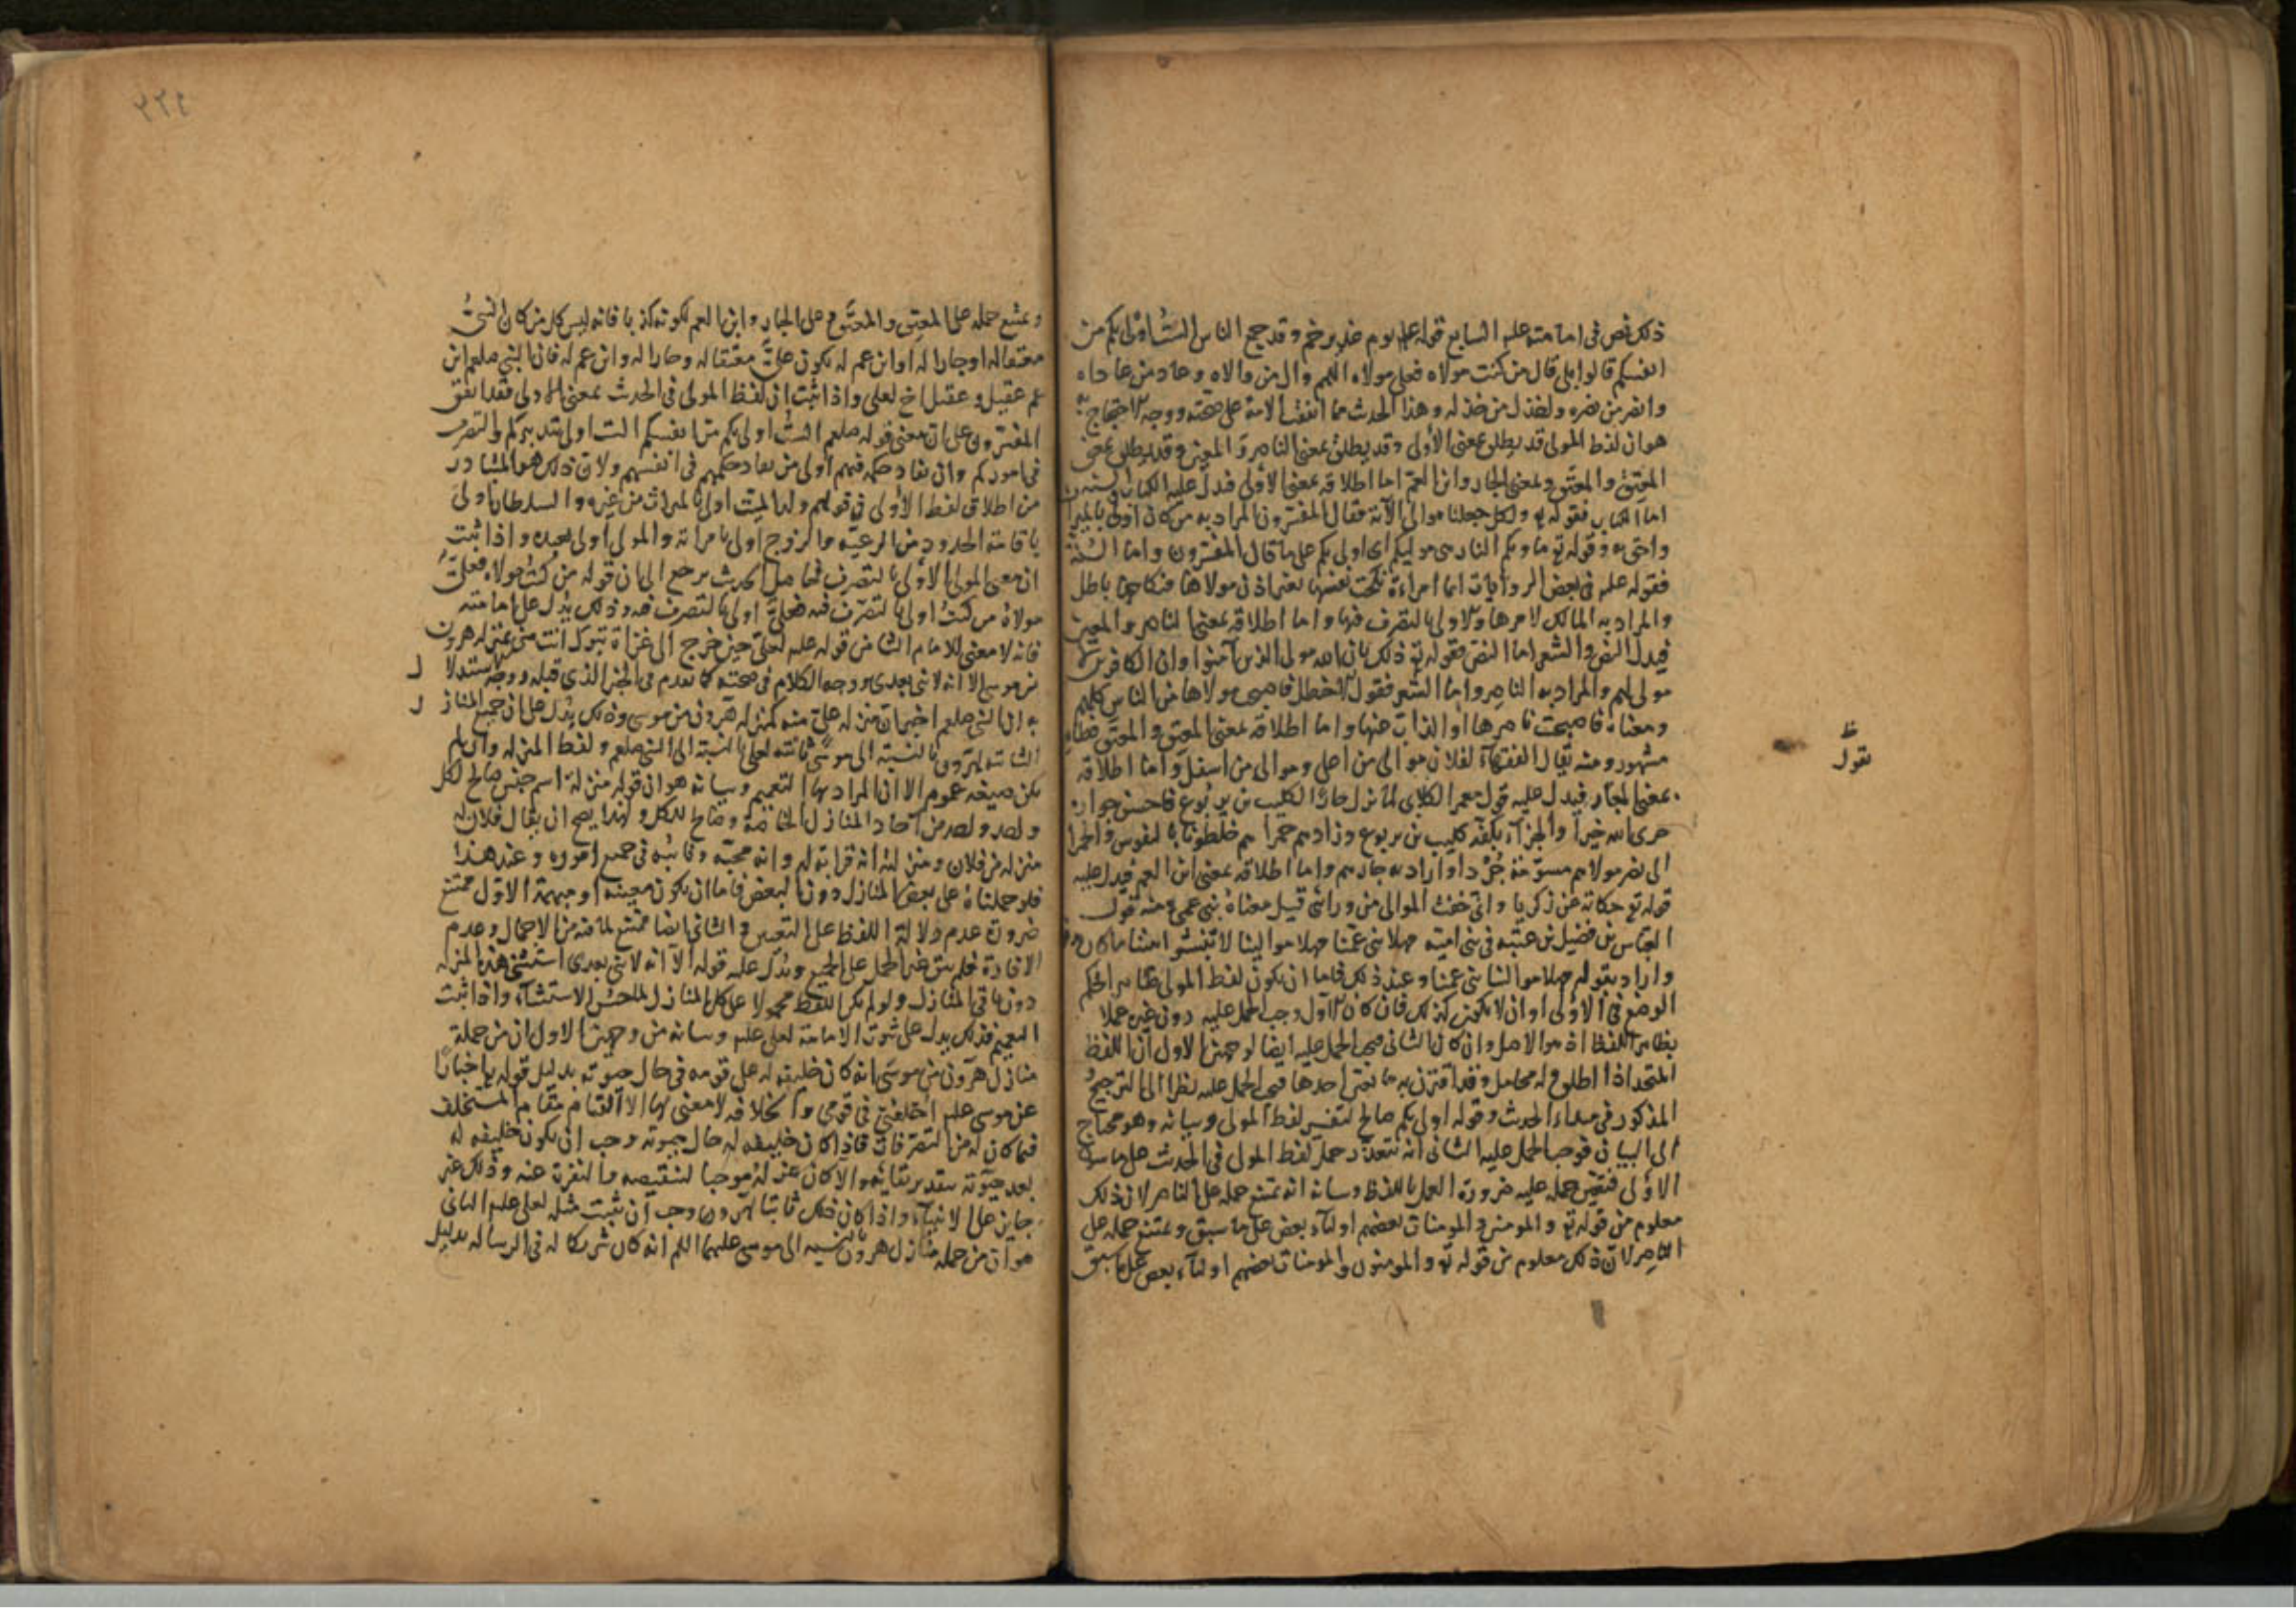 ذلك نص فى امامته عليه السابع قوله عليه يوم غدير خم وقد جمع الناس الست اولى بكم من
انفسكم قالوا بلى قال من كنت مولاه فعلى مولاه اللهم وال من والاه وعاد من عاداه
وانصر من نصره واخذل من خذله وهذا الحدث مما اتفقت الامة على صحته ووجه الاحتجاج به
هو ان لفظ المولى قد يطلق بمعنى الأولى وقد يطلق بمعنى الناصر والمعين وقد يطلق بمعنى
المعتق والمعتق وبمعنى الجار وابن العم اما اطلاقه بمعنى الأولى فدل عليه الكتاب والسنه
اما الكتاب فقوله تع ولكل جعلنا موالى الآية فقال المفسرون المراد به من كان اولى بالميراث
واحق به وقوله تع ماويكم النار هى موليكم اى اولى بكم على ما قال المفسرون واما السنة
فقوله عليه فى بعض الروايات ايما امراءة نكحت نفسها بغير اذن مولاها فنكاحها باطل
والمراد به المالك لامرها والاولى بالتصرف فيها واما اطلاقه بمعنى الناصر والمعين
فيدل النص والشعر اما النص فقوله تع ذلك بان الله مولى الذين آمنوا وان الكافرين لا
مولى لهم والمراد به الناصر واما الشعر فقول الاخطل فاصبحت مولاها من الناس كلهم
ومعناه فاصبحت ناصرها او الذاب عنها واما اطلاقه بمعنى المعتق والمعتق فظاهر
مشهور ومنه يقال الفقهآء لفلان موالى من اعلى وموالى من اسفل واما اطلاقه
بمعنى الجار فيدل عليه قول معمر الكلابى لما نزل جارا لكليب بن يربوع فاحسن جواره
جزى الله خيرا والجزآء بكفه كليب بن يربوع وزادهم حمرا هم خلطونا بالنفوس والجموا
الى نصر مولاهم مسومة جردا واراد به جارهم واما اطلاقه بمعنى ابن العم فيدل عليه
قوله تع حكاية عن زكريا وانى خفت الموالى من ورائى قيل معناه بنى عمى ومنه قول
العباس بن فضيل بن عتبه فى بنى اميه مهلا بنى عمنا مهلا موالينا لا تنبشوا بيننا ما كان
واراد بقوله مهلا موالينا بنى عمنا وعند ذلك فاما ان يكون لفظ المولى ظاهر الحكم
الوضع فى الأولى او ان لا يكون كذلك فان كان الاول وجب الحمل عليه دون غيره عملا
بظاهر اللفظ اذ هو الاصل وان كان الثانى فيجب الحمل عليه ايضا لوجهين الاول ان اللفظ
المتحد اذا اطلق وله محامل وقد اقترن به ما يعين احدها فيجب الحمل عليه نظرا الى الترجيح
المذكور فى مبداء الحدث وقوله اولى بكم صالح لتفسير لفظ المولى وبيانه وهو محتاج
الى البيان فوجب الحمل عليه الثانى انه يتعذر حمل لفظ المولى فى الحدث على ما سوى
الاولى فتعين حمله عليه ضرورة العمل باللفظ وبيانه انه يمتنع حمله على الناصر لان ذلك
معلوم من قوله تع والمومنون والمومنات بعضهم اوليآء بعض على ما سبق ويمتنع حمله على
الناصر لان ذلك معلوم من قوله تع والمومنون والمومنات بعضهم اوليآء بعض على ما سبق
ظ
نقول
٢٢٤
ويمتنع حمله على المعتق والمعتق وعلى الجار وابن العم لكونه كذبا فانه ليس كل من كان النبى
معتقا له او جارا له او ابن عم له يكون على معتقا له وجارا له وابن عم له فان النبى صلعم ابن
عم عقيل وعقيل اخ لعلى واذا ثبت ان لفظ المولى فى الحدث بمعنى الاولى فقد اتفق
المفسرون على ان معنى قوله صلعم الست اولى بكم من انفسكم الست اولى بتدبيركم والتصرف
فى اموركم وان نفاد حكمه فيهم اولى من نفاد حكمهم فى انفسهم ولان ذلك هو المتبادر
من اطلاق لفظ الأولى فى قولهم ولد الميت اولى بالميراث من غيره والسلطان اولى
باقامة الحدود من الرعية والزوج اولى بامراته والمولى اولى بعبده واذا ثبت
ان معنى المولى الاولى بالتصرف فحاصل الحديث يرجع الى ان قوله من كنت مولاه فعلى
مولاه من كنت اولى بالتصرف فيه فعلى اولى بالتصرف فيه وذلك يدل على امامته
فانه لا معنى للامام الثامن قوله عليه لعلى حين خرج الى غزاة تبوك انت منى بمنزلة هرون
من موسى الا انه لا نبى بعدى ووجه الكلام فى صحته كما تقدم فى الخبر الذى قبله ووجه الاستدلال
به ان النبى صلعم اخبر ان منزلة على منه كمنزلة هرون من موسى وذلك يدل على ان جميع المنازل
الثابته لهرون بالنسبة الى موسى ثابته لعلى بالنسبة الى النبى صلعم ولفظ المنزله وان لم
يكن صيغه عموم الا ان المراد بها التعميم وبيانه هو ان قوله منزله اسم جنس صالح لكل
واحد واحد من آحاد المنازل الخاصة وصالح للكل ولهذا يصح ان يقال فلان له
منزله من فلان ومنزلته انه قرابة له وانه محبه ونائبه فى جميع اموره وعند هذا
فلو حملناه على بعض المنازل دون البعض فاما ان يكون معينه او مبهمة الاول ممتنع
ضرورة عدم دلالة اللفظ على التعيين والثانى ايضا ممتنع لما فيه من الاجمال وعدم
الافادة فلم يبق غير الحمل على الجميع ويدل عليه قوله الا انه لا نبى بعدى استثنى هذه المنزله
دون باقى المنازل ولو لم يكن اللفظ محمولا على كل المنازل لما حسن الاستثنآء واذا ثبت
التعميم فذلك يدل على ثبوت الامامة لعلى عليه وبيانه من وجهين الاول ان من جملة
منازل هرون من موسى انه كان خليفه له على قومه فى حال حيوته بدليل قوله تع اخبارا
عن موسى عليه اخلفنى فى قومى والخلافه لا معنى لها الا القيام مقام المستخلف
فيما كان له من التصرفات فاذا كان خليفه له حال حيوته وجب ان يكون خليفه له
بعد حيوته بتقدير بقائه والا كان عزله موجبا لتنقيصه والنفرة عنه وذلك غير
جايز على الانبيآء واذا كان ذلك ثابتا لهرون وجب ان يثبت مثله لعلى عليه الثانى
هو ان من جمله منازل هرون بالنسبه الى موسى عليهما السلم انه كان شريكا له فى الرساله بدليل